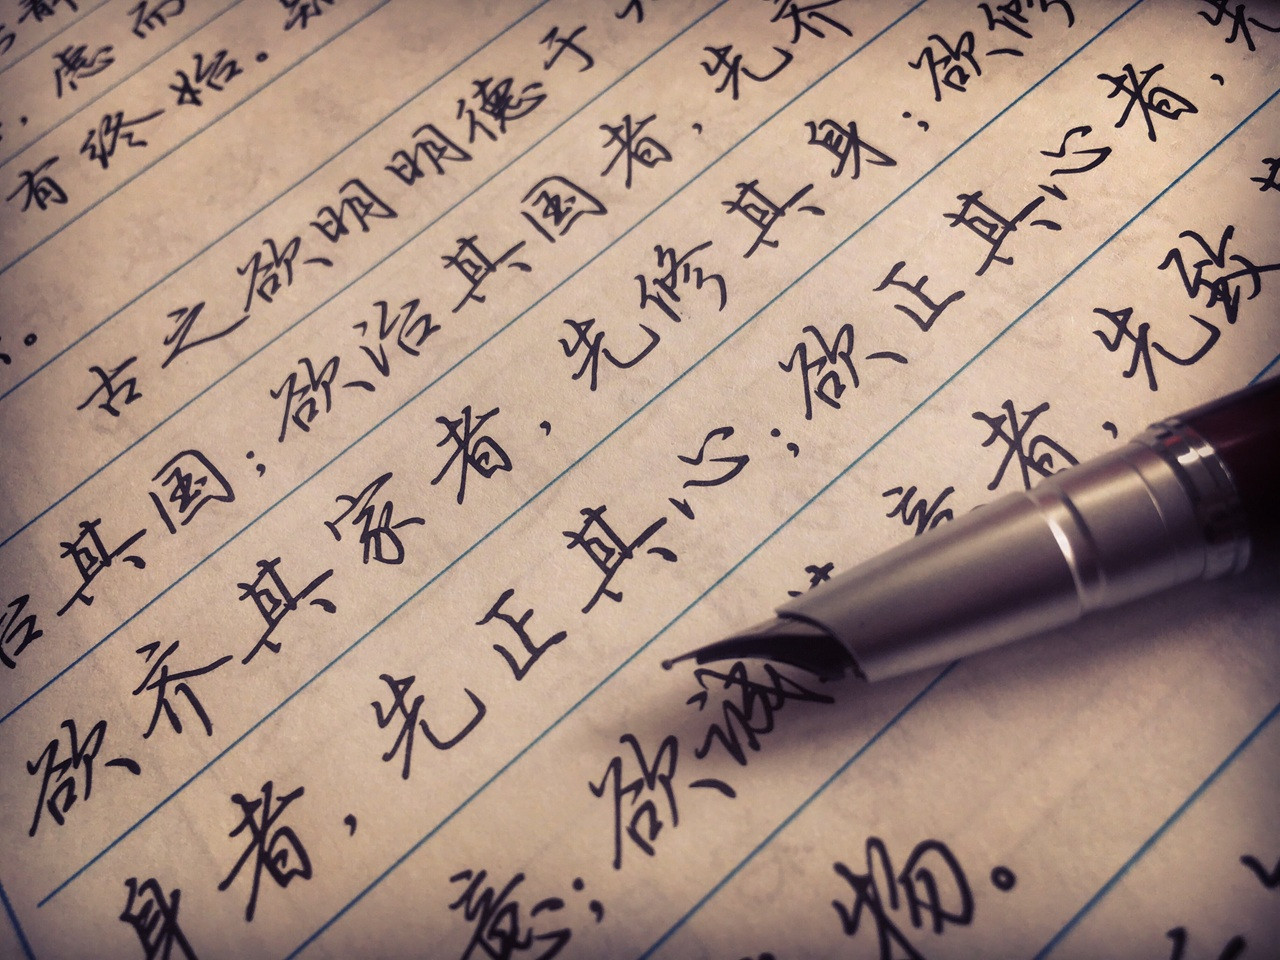 ，虑而
有终始。
。
古之欲明明德于
治其国；欲治其国者，先齐
欲齐其家者，先修其身；欲修
身者，先正其心；欲正其心者，先
意；欲诚其意者，先致
物。